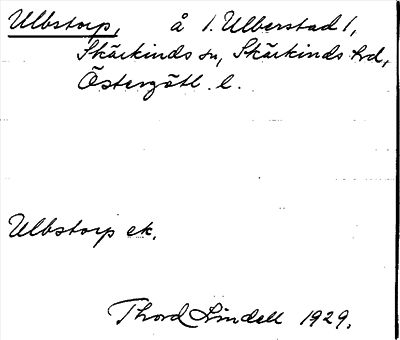 Ulbstorp, å 1. Ulberstad 1,
Skärkinds sn, Skärkinds hd,
Östergötl. l.
Ulbstorp ek.
Thord Lindell 1929.